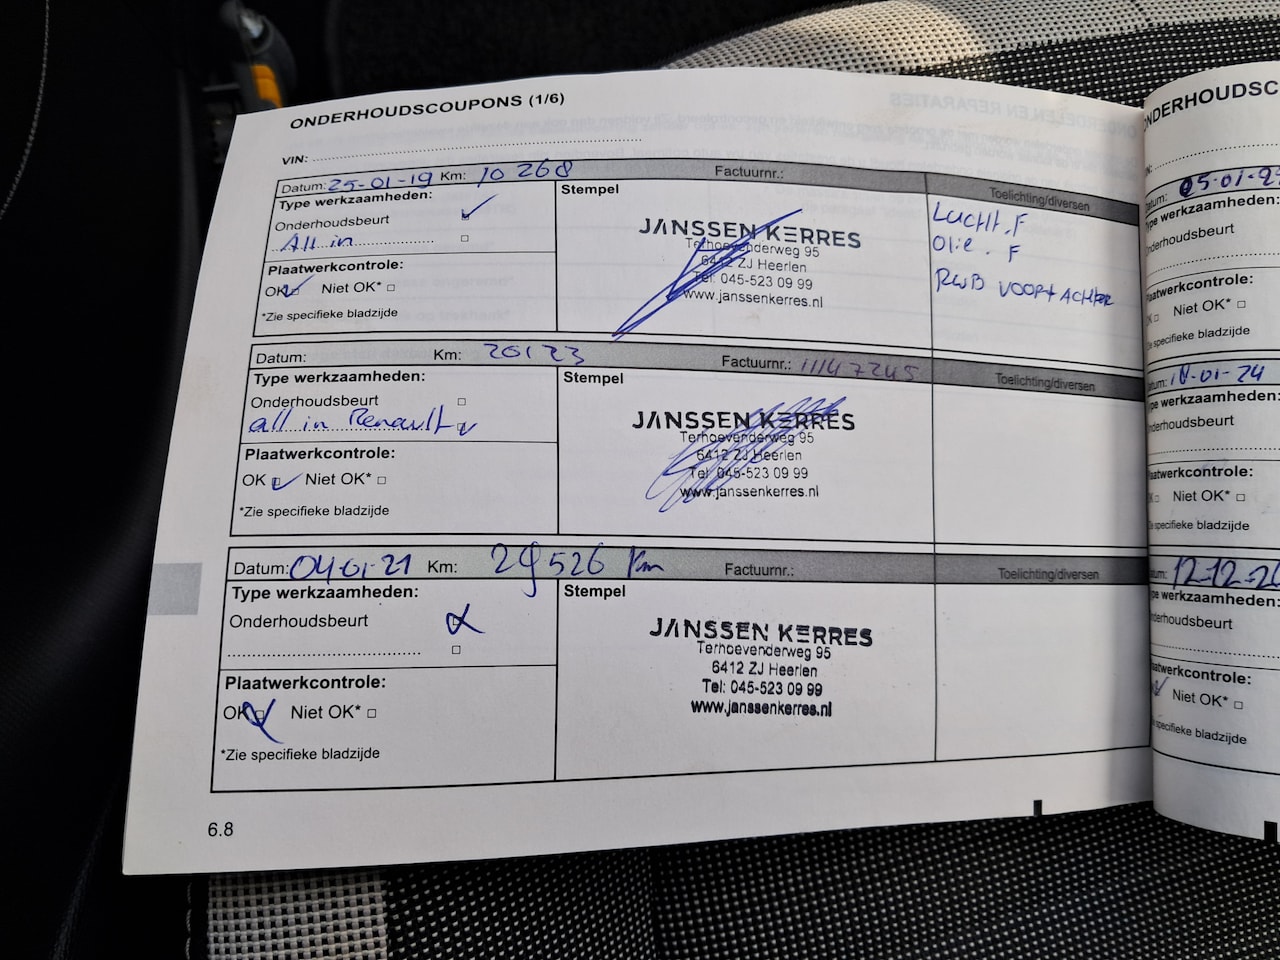 ONDERHOUDSCOUPONS (1/6)
VIN:
Datum: 25-01-19 Km: 10 268 Factuurnr.: Toelichting/diversen
Type werkzaamheden:
Onderhoudsbeurt
All in
Plaatwerkcontrole:
OK Niet OK*
*Zie specifieke bladzijde
Stempel
JANSSEN KERRES
Terhoevenderweg 95
6412 ZJ Heerlen
Tel: 045-523 09 99
www.janssenkerres.nl
Lucht.F
Olie. F
RWB VOOR+ACHTER
Datum: Km: 20123 Factuurnr.: 11147245 Toelichting/diversen
Type werkzaamheden:
Onderhoudsbeurt
all in Renault
Plaatwerkcontrole:
OK Niet OK*
*Zie specifieke bladzijde
Stempel
JANSSEN KERRES
Terhoevenderweg 95
6412 ZJ Heerlen
Tel: 045-523 09 99
www.janssenkerres.nl
Datum: 04-01-21 Km: 29526 Km Factuurnr.: Toelichting/diversen
Type werkzaamheden:
Onderhoudsbeurt
Plaatwerkcontrole:
OK Niet OK*
*Zie specifieke bladzijde
Stempel
JANSSEN KERRES
Terhoevenderweg 95
6412 ZJ Heerlen
Tel: 045-523 09 99
www.janssenkerres.nl
6.8
ONDERHOUDSC
Type werkzaamheden:
Onderhoudsbeurt
Plaatwerkcontrole:
Niet OK*
specifieke bladzijde
-01-24
werkzaamheden:
Onderhoudsbeurt
Plaatwerkcontrole:
Niet OK*
specifieke bladzijde
12-12-2
werkzaamheden:
Onderhoudsbeurt
Plaatwerkcontrole:
Niet OK*
specifieke bladzijde